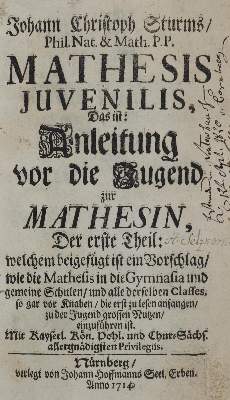 Johann Christoph Sturms/
Phil. Nat. & Math. P. P.
MATHESIS
JUVENILIS,
Das ist:
Anleitung
vor die Jugend
zur
MATHESIN,
Der erste Theil:
welchem beigefügt ist ein Vorschlag/
wie die Mathesis in die Gymnasia und
gemeine Schulen/ und alle derselben Classes,
so gar vor Knaben/ die erst zu lesen anfangen/
zu der Jugend grossen Nutzen/
einzuführen ist.
Mit Kayserl. Kön. Pohl. und Chur-Sächs.
allergnädigsten Privilegiis.
Nürnberg/
verlegt von Johann Hoffmanns Seel. Erben.
Anno 1714.